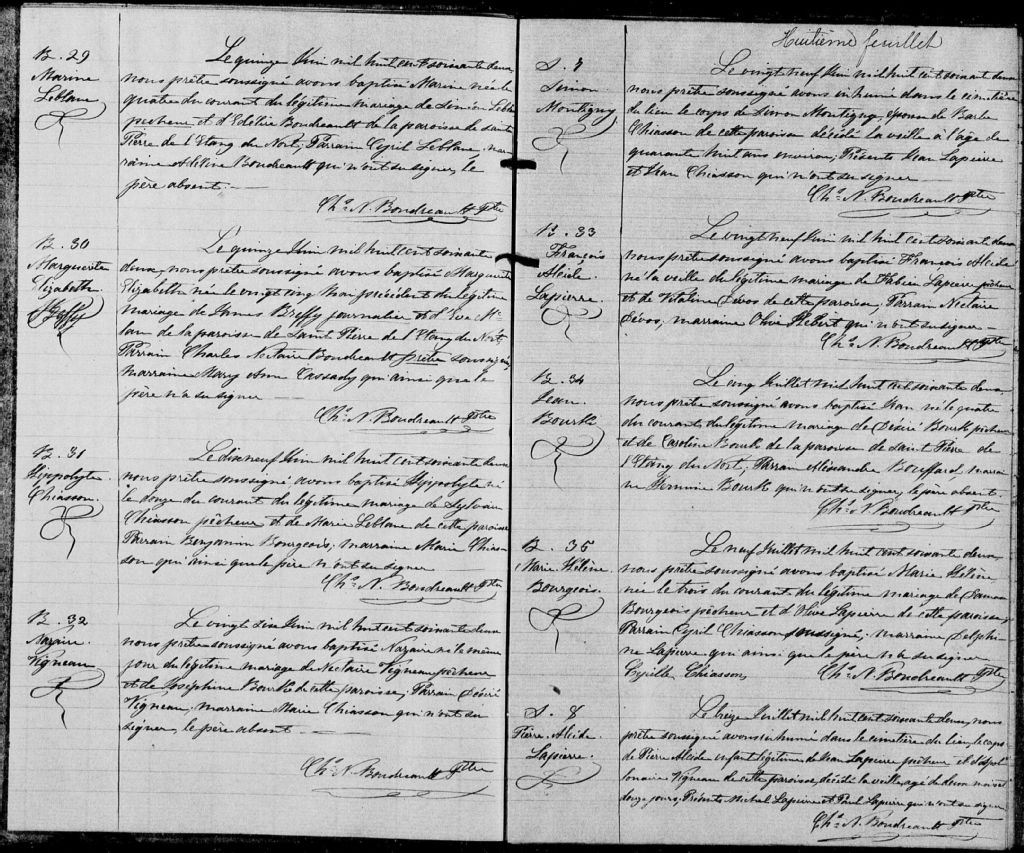 B. 29
Marine
Leblanc
Le quinze Juin mil huit cent soixante deux
nous prêtre soussigné avons baptisé Marine née le
quatre du courant du légitime mariage de Siméon Leblanc
pecheur et d'Edélie Boudreault de la paroisse de Saint
Pierre de l'Etang du Nort; Parrain Cyril Leblanc, mar-
raine Adeline Boudreault qui n'ont su signer, le
père absent. —
Chs. N. Boudreault Ptre
B. 30
Marguerite
Elizabeth
Le quinze Juin mil huit cent soixante
deux, nous prêtre soussigné avons baptisé Marguerite
Elizabeth née le vingt cinq Mai précédent du légitime
mariage de James journalier et d'Eve
de la paroisse de Saint Pierre de l'Etang du Nort
Parrain Charles Nectaire Boudreault prêtre soussigné,
marraine Mary Ann Cassady qui ainsi que le
père n'a su signer —
Chs. N. Boudreault Ptre
B. 31
Hippolyte
Chiasson.
Le dixneuf Juin mil huit cent soixante deux
nous prêtre soussigné avons baptisé Hippolyte né
le douze du courant du légitime mariage de Sylvain
Chiasson pêcheur et de Marie Leblanc de cette paroisse
Parrain Benjamin Bourgeois; marraine Marie Chias-
son qui ainsi que le père n'ont su signer
Chs. N. Boudreault Ptre
B. 32
Nazaire
Vigneau
Le vingt six Juin mil huit cent soixante deux
nous prêtre soussigné avons baptisé Nazaire né le même
jour du légitime mariage de Nectaire Vigneau pêcheur
et de Joséphine Bourk de cette paroisse; Parrain Désiré
Vigneau, marraine Marie Chiasson qui n'ont su
signer, le père absent —
Chs. N. Boudreault Ptre
Huitième feuillet
S. 7
Simon
Montigny
Le vingt neuf Juin mil huit cent soixante deux
nous prêtre soussigné avons inhumé dans le cimetière
du lieu le corps de Simon Montigny, époux de Barbe
Chiasson de cette paroisse décédé la veille à l'age de
quarante huit ans environ; Présents Jean Lapierre
et Jean Chiasson qui n'ont su signer
Chs. N. Boudreault Ptre
B. 33
François
Alcide
Lapierre
Le vingt neuf Juin mil huit cent soixante deux
nous prêtre soussigné avons baptisé François Alcide
né la veille du légitime mariage de Fabien Lapierre pêcheur
et de Vitaline Devos de cette paroisse; Parrain Nectaire
Devos; marraine Olive Hebert qui n'ont su signer —
Chs. N. Boudreault Ptre
B. 34
Jean
Bourk
Le cinq Juillet mil huit cent soixante deux
nous prêtre soussigné avons baptisé Jean né le quatre
du courant du légitime mariage de Désiré Bourk pêcheur
et de Caroline Bourk de la paroisse de Saint Pierre de
l'Etang du Nort; Parrain Alexandre Bouffard, marrai-
ne Bourk qui n'ont su signer, le père absent.
Chs. N. Boudreault Ptre
B. 35
Marie Hélène
Bourgeois.
Le neuf Juillet mil huit cent soixante deux
nous prêtre soussigné avons baptisé Marie Hélène
née le trois du courant du légitime mariage de Damon
Bourgeois pêcheur et d'Olive Lapierre de cette paroisse;
Parrain Cyril Chiasson soussigné; marraine Delphi-
ne Lapierre qui ainsi que le père n'a su signer
Cyrille Chiasson Chs. N. Boudreault Ptre
S. 8
Pierre Alcide
Lapierre
Le treize Juillet mil huit cent soixante deux, nous
prêtre soussigné avons inhumé dans le cimetière du lieu, le corps
de Pierre Alcide enfant légitime de Jean Lapierre pêcheur et d'Apol-
lonaire Vigneau de cette paroisse, décédé la veille, agé de deux mois et
douze jours; Présents Michel Lapierre et Paul Lapierre qui n'ont su signer
Chs. N. Boudreault Ptre